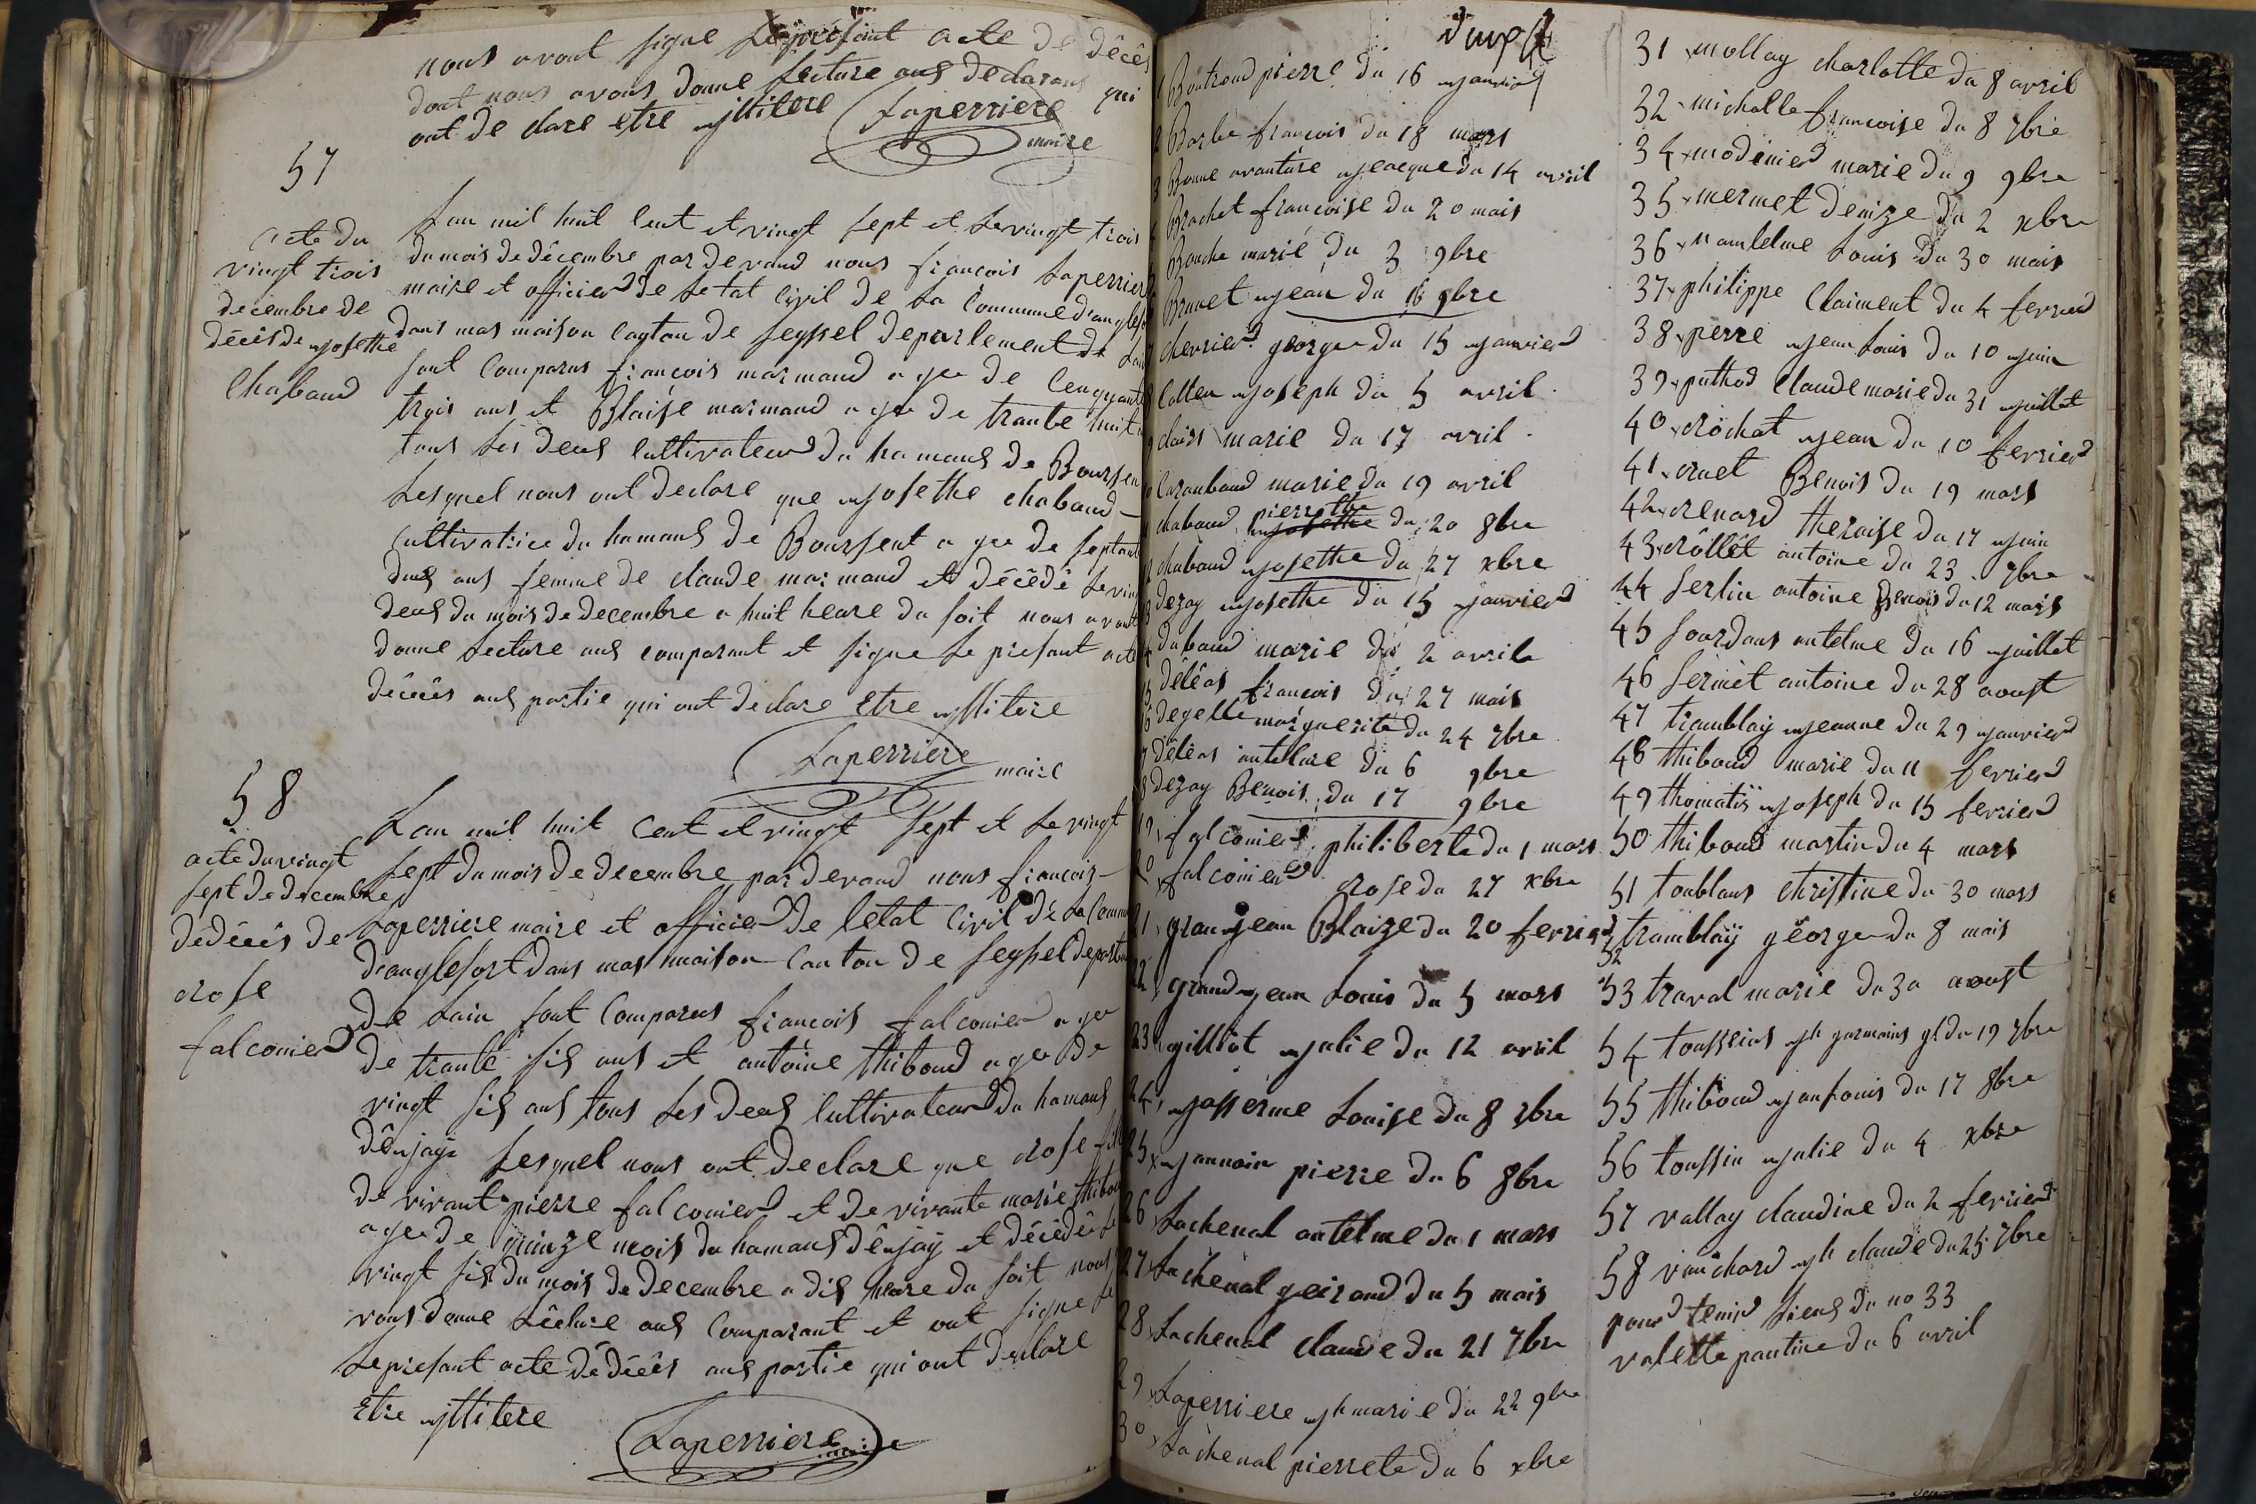 nous avont signe le presant acte de décès
dont nous avons donne lecture aus declarans qui
ont de clare etre illitere Laperriere
maire
57
acte du
vingt trois
decembre de
décès de josethe
Chabaud
Lan mil huit Cent et vingt sept et le vingt trois
du mois de décembre par devand nous françois Laperrier
maire et officier de le tat Civil de la Commune d'anglefo
dans mas maison Cagton de seyssel departement de Lain
sont Comparus françois marmand agee de Cenquante
trois ans et Blaise marmand agee de trante huit
tous les deus Cultivateur du hamaus de Boursen
Lesquel nous ont declare que josethe chabaud
Cultivatrice du hamaus de Boursent agee de septante
deus ans femme de claude marmand et décèdé le vin
deus du mois de decembre a huit heure du soit nous avont
donne lecture aus comparant et signe le presant acte
décès aus partie qui ont declare Etre illitere
Laperriere maire
58
acte du vingt
sept de decembre
dedécès de
rose
falconier
Lan mil huit Cent et vingt sept et le vingt
sept du mois de decembre par devand nous françois
Laperriere maire et officier de letat Civil de la Commu
d'anglefort dans mas maison Canton de seyssel departem
de Lain sont Comparus françois falconier agee
de trante sis ans et antoine thiboud agee de
vingt sis ans tous les deus Cultivateur du hamaus
dênjaÿ Lesquel nous ont declare que rose fill
de vivant pierre falconier et de vivante marie thibou
agee de quinze mois du hamaus dênjaÿ et décèdé le
vingt sis du mois de decembre a dis heare du soit nous
vons donne Lêcture aus Comparant et ont signe le
Le presant acte dédécès aus partie qui ont declare
Etre illitere
Laperriere maire
1 Boutroud pierre du 16 janvier
2 Barbe françois du 18 mars
3 Bonne avanture jeacque du 14 avril
Brachet françoise du 20 mais
Bouche marie du 3 9bre
Brunet jean du 16 9bre
chevrier george du 15 janvier
Cotten joseph du 5 avril
clairs marie du 17 avril
Caraubaud marie du 19 avril
chabaud pierrethe josethe du 20 8bre
chabaud josethe du 27 xbre
dezay josethe du 15 janvier
dubaud marie du 2 avrile
délêas françois du 27 mais
degelle marguerite du 24 7bre
délêas antelme du 6 9bre
dezay Benois du 17 9bre
19 falconier philiberte du 1 mars
20 falconier rose du 27 xbre
21 gran jean Blaize du 20 ferrier
22 grand jean Louis du 5 mars
23 gilliot julie du 12 avril
24 josserme Louise du 8 7bre
25 jannoin pierre du 6 8bre
26 Lachenal antelme du 1 mars
27 Lachenal geiraud du 5 mais
28 Lachenal claude du 21 7bre
29 Laperriere jh marie du 22 9bre
30 Lachenal pierrete du 6 xbre
31 mollay charlotte du 8 avril
32 michalle françoise du 8 7bre
34 modinier marie du 9 9bre
35 mermet denize du 2 xbre
36 nantelme Louis du 30 mais
37 philippe Claiment du 4 ferrier
38 perre jean Louis du 10 juin
39 puthod Claude marie du 31 juillet
40 rôchat jean du 10 ferrier
41 ruet Benois du 19 mars
42 renard theraise du 17 juin
43 rôllêt antoine du 23 7bre
44 serlin antoine Benois du 12 mars
45 sourdans antelme du 16 juillet
46 sermêt antoine du 28 aoust
47 tramblaij jeanne du 29 janvier
48 thiboud marie du 11 ferrier
49 thomatis joseph du 15 ferrier
50 thiboud martin du 4 mars
51 toublans christine du 30 mars
52 tramblaÿ george du 8 mais
53 traval marie du 30 aoust
54 tousseins jh germains gl du 19 7bre
55 thiboud jan Louis du 17 8bre
56 toussin julie du 4 xbre
57 vallay claudine du 2 ferrier
58 vanchard jh claude du 25 7bre
pour tenir Lieus du no 33
valette pautine du 6 avril